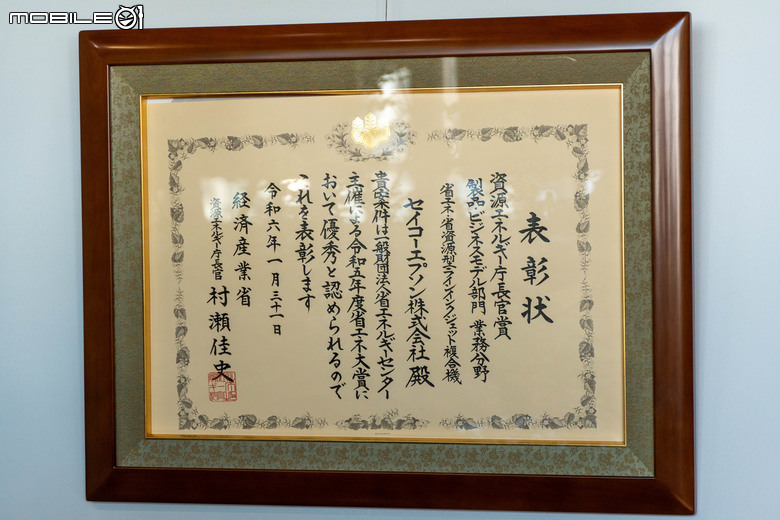 MOBILE01
表彰状
資源エネルギー庁長官賞
製品・ビジネスモデル部門 業務分野
省エネ・省資源型ラインインクジェット複合機
セイコーエプソン株式会社 殿
貴案件は一般財団法人省エネルギーセンター
主催による令和五年度省エネ大賞に
おいて優秀と認められるので
これを表彰します
令和六年一月三十一日
経済産業省
資源エネルギー庁長官
村瀬佳史